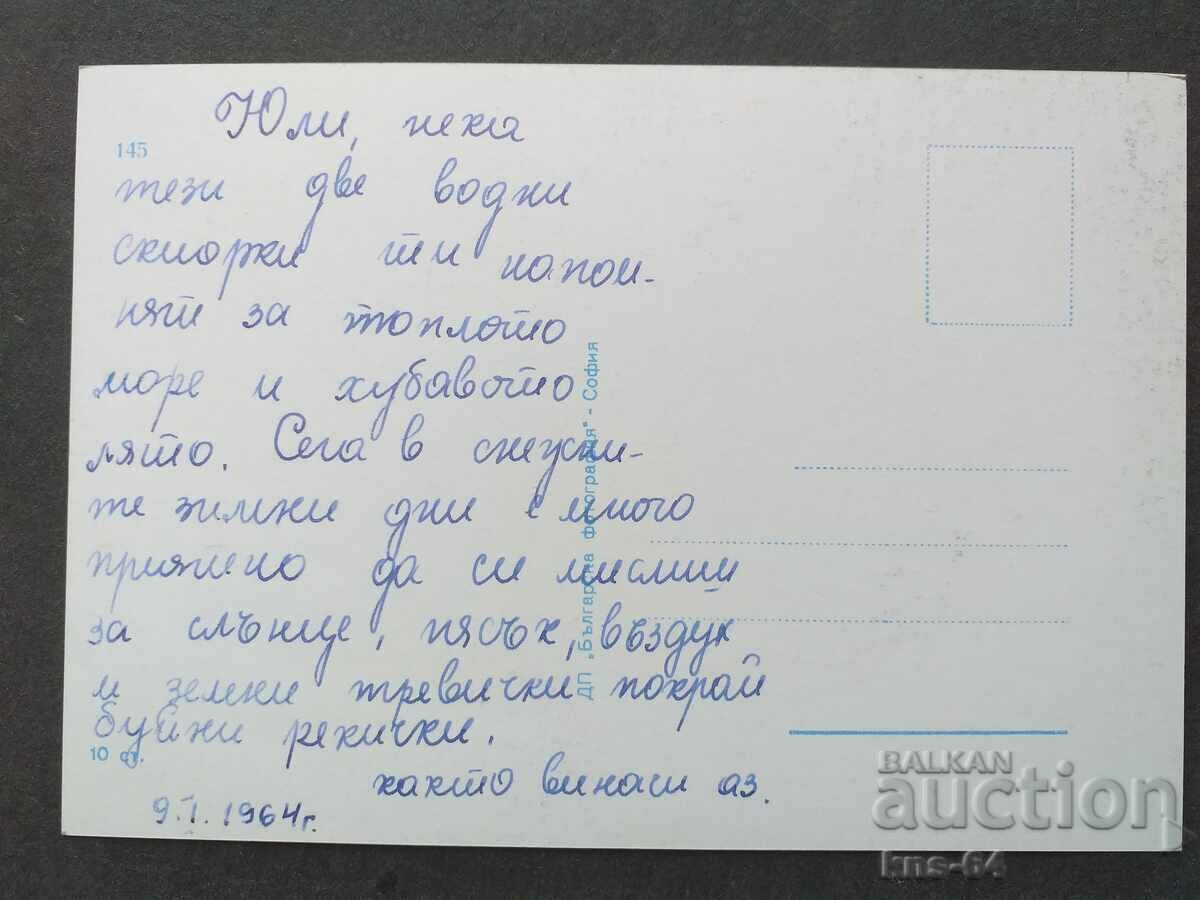 Юли, нека
145
тези две водни
скиорки ти напом-
нят за топлото
море и хубавото
лято. Сега в снежни-
те зимни дни е много
приятно да си мислиш
за слънце, пясък, въздух
и зелени тревички покрай
буйни рекички.
10 ф.
както винаги аз.
9.I.1964г.
ДП „Българска фотография" - София
BALKAN
auction
kns-64